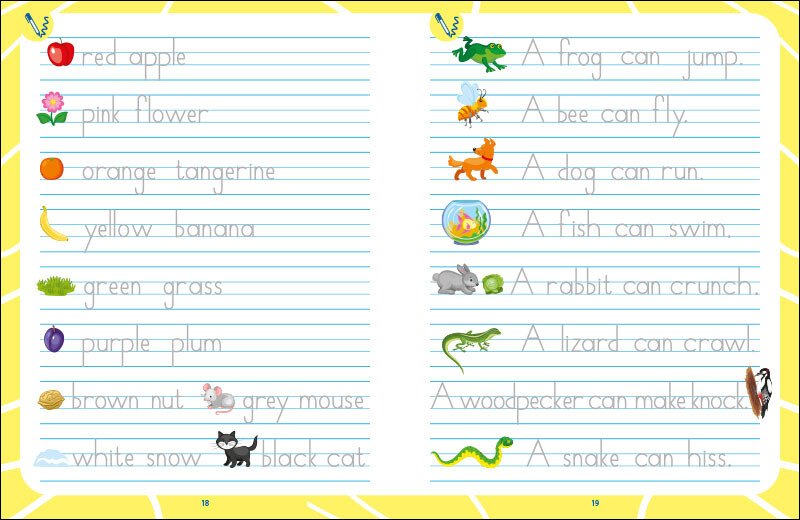 red apple
pink flower
orange tangerine
yellow banana
green grass
purple plum
brown nut grey mouse
white snow black cat
18
A frog can jump.
A bee can fly.
A dog can run.
A fish can swim.
A rabbit can crunch.
A lizard can crawl.
A woodpecker can make knock.
A snake can hiss.
19